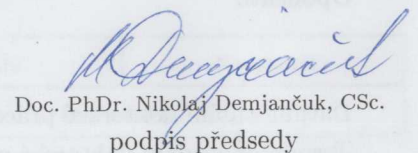 Doc. PhDr. Nikolaj Demjančuk, CSc.
podpis předsedy